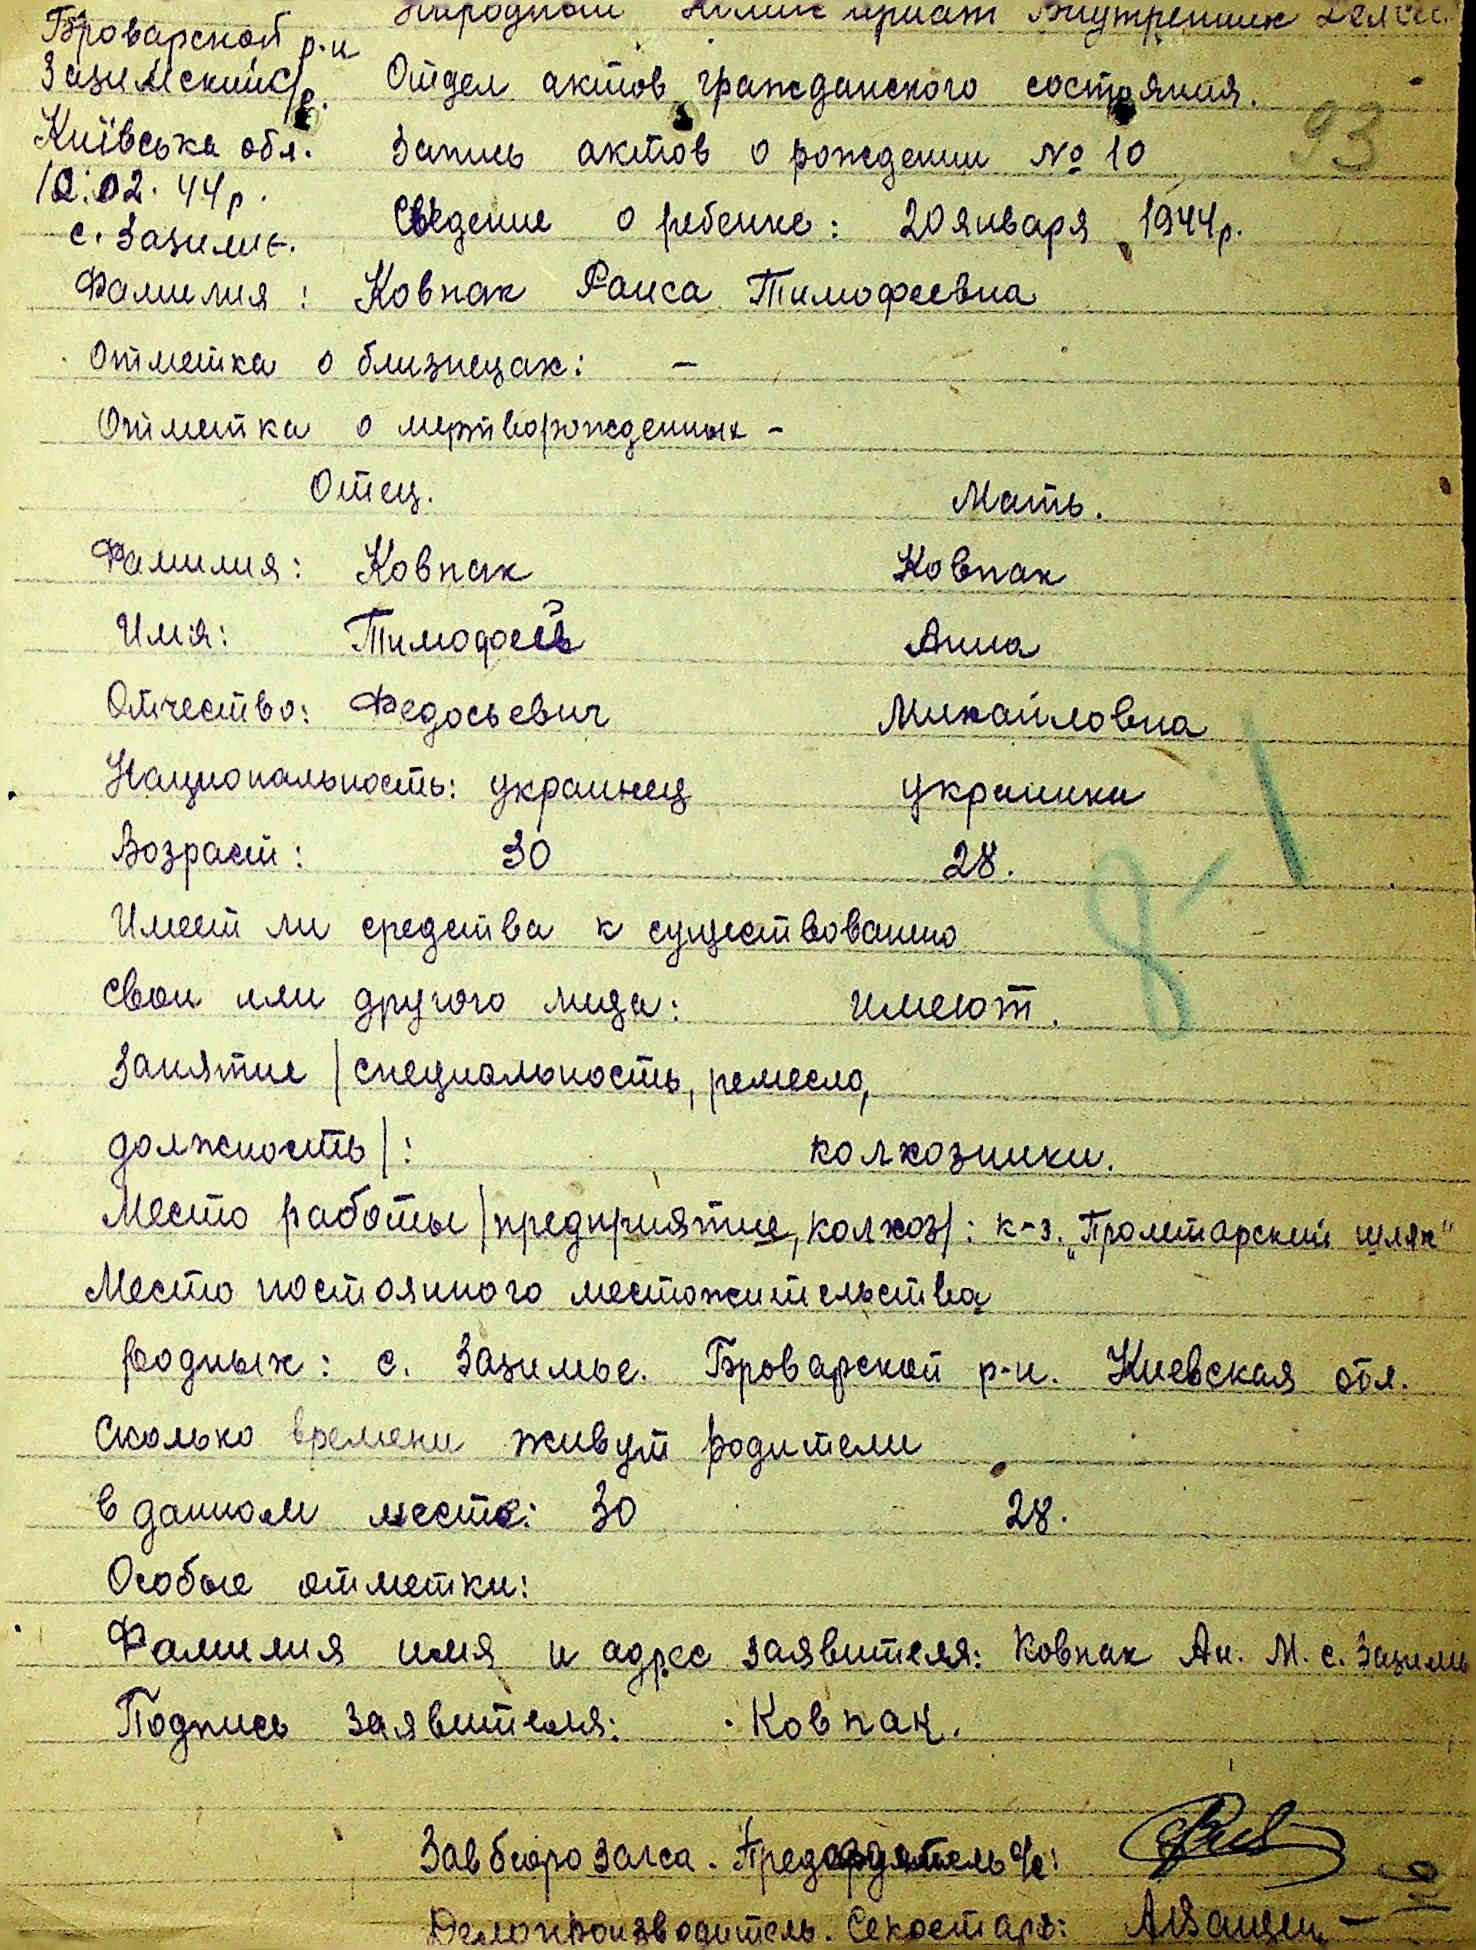 Народный Комиссариат Внутренних Дел
Броварской р-н
Зазимский с/с.
Отдел актов гражданского состояния.
Київська обл.
Запись актов о рождении № 10
93
10.02.44р.
с. Зазимье.
Сведение о ребенке: 20 января 1944р.
Фамилия: Ковпак Раиса Тимофеевна
Отметка о близнецах: –
Отметка о мертворожденных –
Отец. Мать.
Фамилия: Ковпак Ковпак
Имя: Тимофей Анна
Отчество: Федосьевич Михайловна
Национальность: украинец украинка
Возраст: 30 28.
8-1
Имеет ли средства к существованию
свои или другого лица: имеют.
Занятие /специальность, ремесло,
должность/: колхозники.
Место работы /предприятие, колхоз/: к-з. „Пролетарский шлях"
Место постоянного местожительства
родных: с. Зазимье. Броварской р-н. Киевская обл.
Сколько времени живут родители
в данном месте: 30 28.
Особые отметки:
Фамилия имя и адрес заявителя: Ковпак Ан. М. с. Зазимь
Подпись заявителя: Ковпак.
Зав бюро загса. Председатель с/с:
Делопроизводитель. Секретарь: